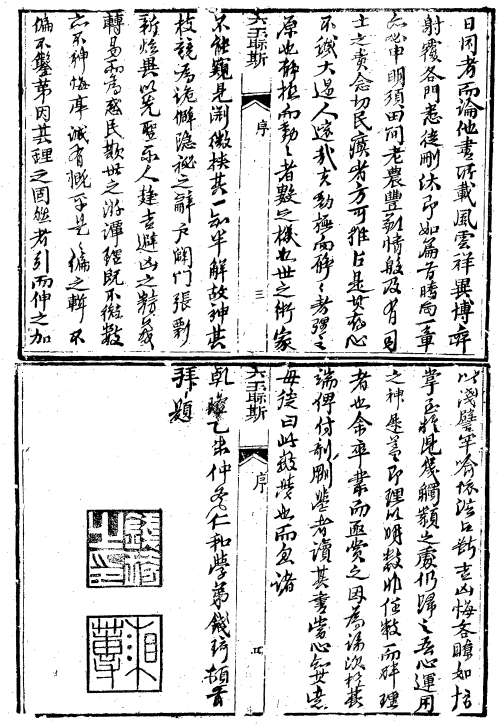 日閑者而論他書所載風雲祥異博弈
射覆各門悉從刪汰即如篇首晴雨一章
亦必申明須田間老農豐歉情殷及有司
土之責念切民瘼者方可推占是其存心
不誠大過人遠哉夫動極而靜靜者理之
原也靜極而動動者數之機也世之術家
不能窺見淵微挾其一知半解故神其
枝競為詭僻隱秘之辭戶闢門張剽
新炫異以先聖示人趨吉避凶之精義
轉易而為惑民欺世之游譚理既不徵數
亦不神悔亭誠有慨乎是是編之輯不
偏不鑿第因其理之固然者引而伸之加
六壬眎斯 序 三
以淺譬罕喻依法占斷吉凶悔吝瞭如指
掌至於見幾觸類之處仍歸之吾心運用
之神是蓋即理以明數非任數而碎理
者也余卒業而亟賞之因為論次於其
端俾付剞劂鑒者讀其書當心知其意
毋徒曰此數學也而忽諸
六壬眎斯 序 四
乾隆乙未仲冬仁和學弟錢琦頓首
拜題
錢琦之印
湘蓴